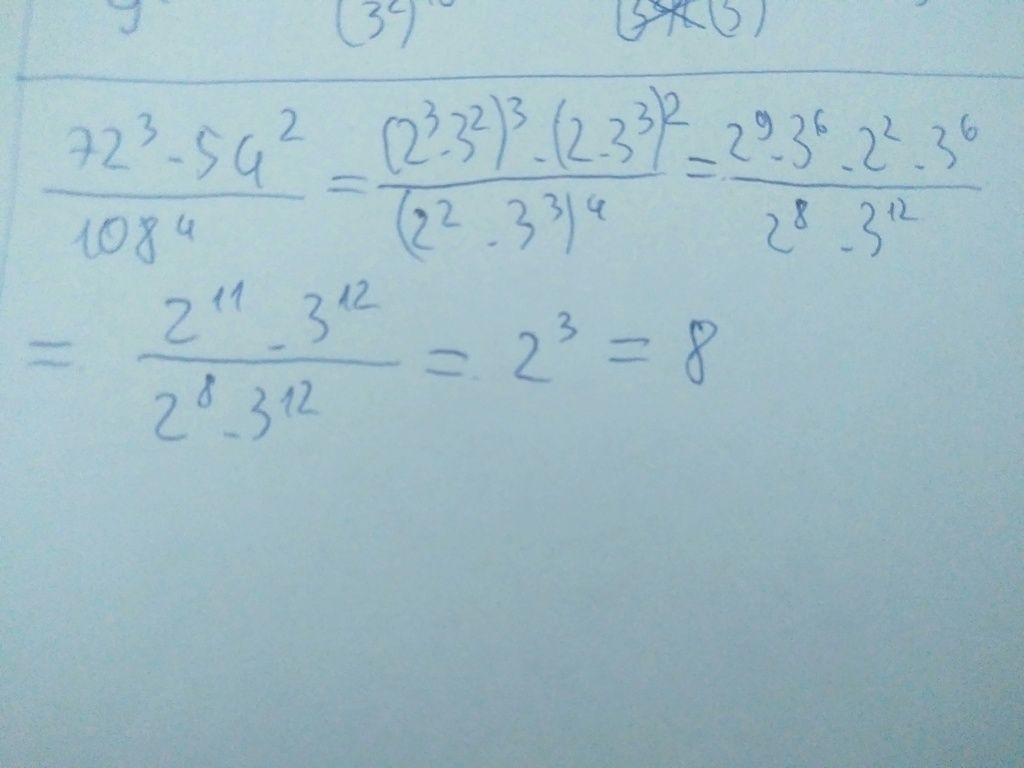 (3²)
72³ . 54² / 108⁴ = (2³ . 3²)³ . (2 . 3³)² / (2² . 3³)⁴ = 2⁹ . 3⁶ . 2² . 3⁶ / 2⁸ . 3¹²
= 2¹¹ . 3¹² / 2⁸ . 3¹² = 2³ = 8